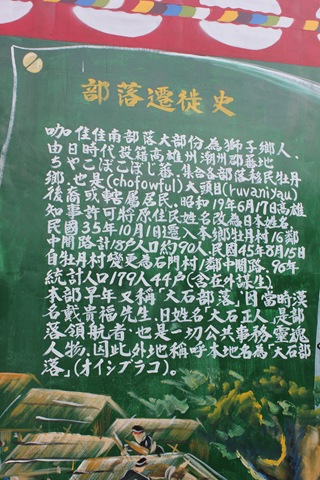 部落遷徙史
咖佳佳南部落大部份為獅子鄉人,
由日時代設籍高雄州潮州郡蕃地
ちやこぼこぼじ蕃.集合各部落移民牡丹
鄉.也是(chofowful)大頭目(ruvaniyau)
後裔或轄屬居民.昭和19年6月17日高雄
知事許可特原住民姓名改為日本姓名.
民國35年10月1日遷入本鄉牡丹村16鄰
中間路.計18戶人口約90人.民國45年8月15日
自牡丹村變更為石門村1鄰中間路.96年
統計人口179人44戶(含在外謀生)
本部早年又稱「大石部落」因當時漢
名戴貴福先生.日姓名「大石正人」是部
落領航者.也是一切公共事務靈魂
人物.因此外地稱呼本地名為「大石部
落」(オイシブラコ)。